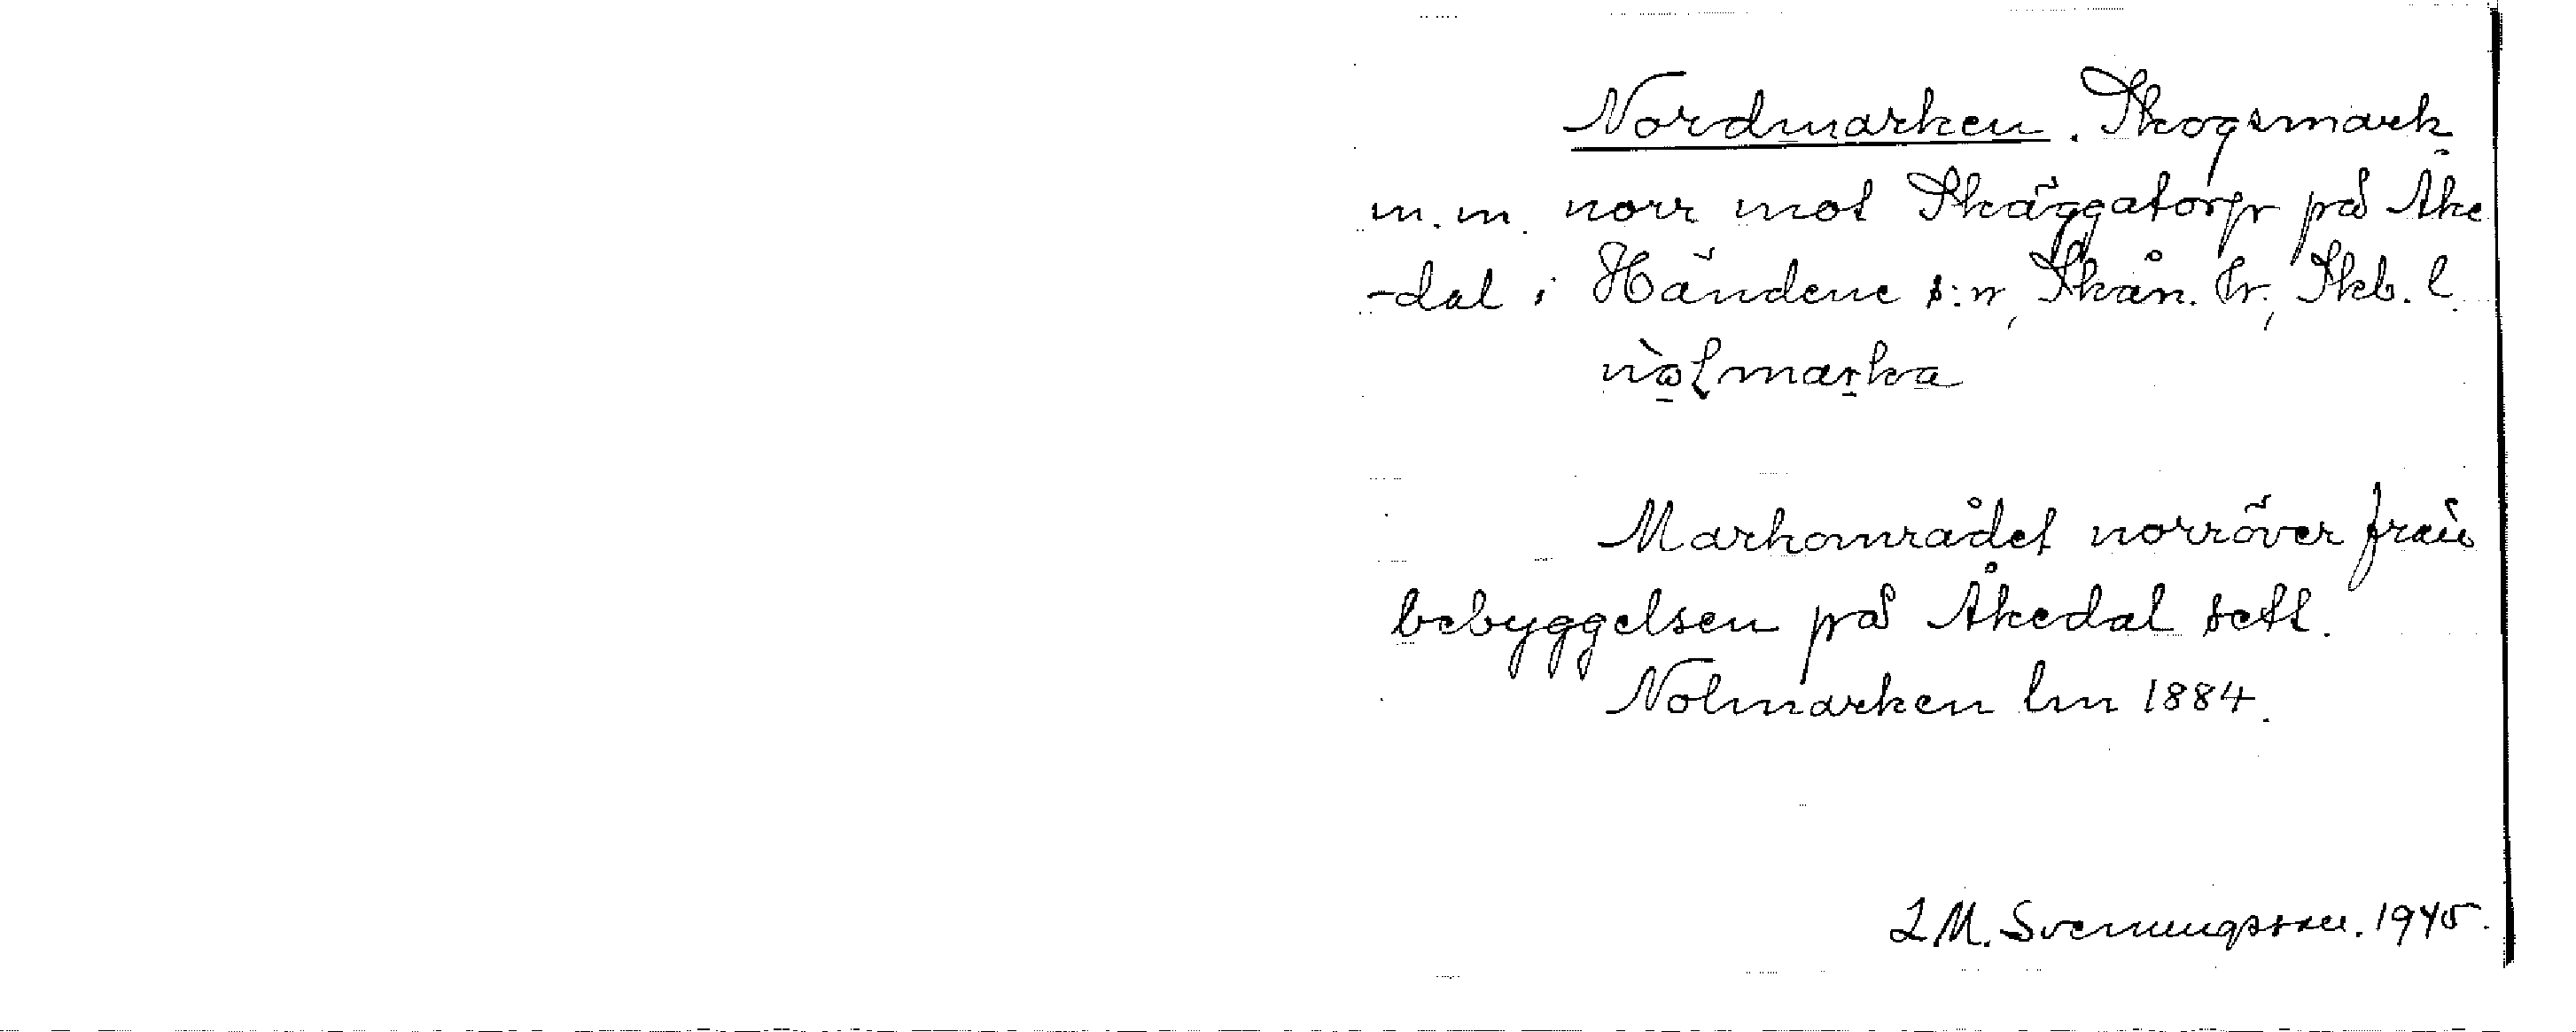 Nordmarken. Skogsmark
m.m. norr mot Skäggatorp på Åke
-dal i Händene s:n, Skån. hr, Skb. l.
Markområdet norröver från
bebyggelsen på Åkedal sett.
Nolmarken lm 1884.
L.M. Svenungsson. 1945.